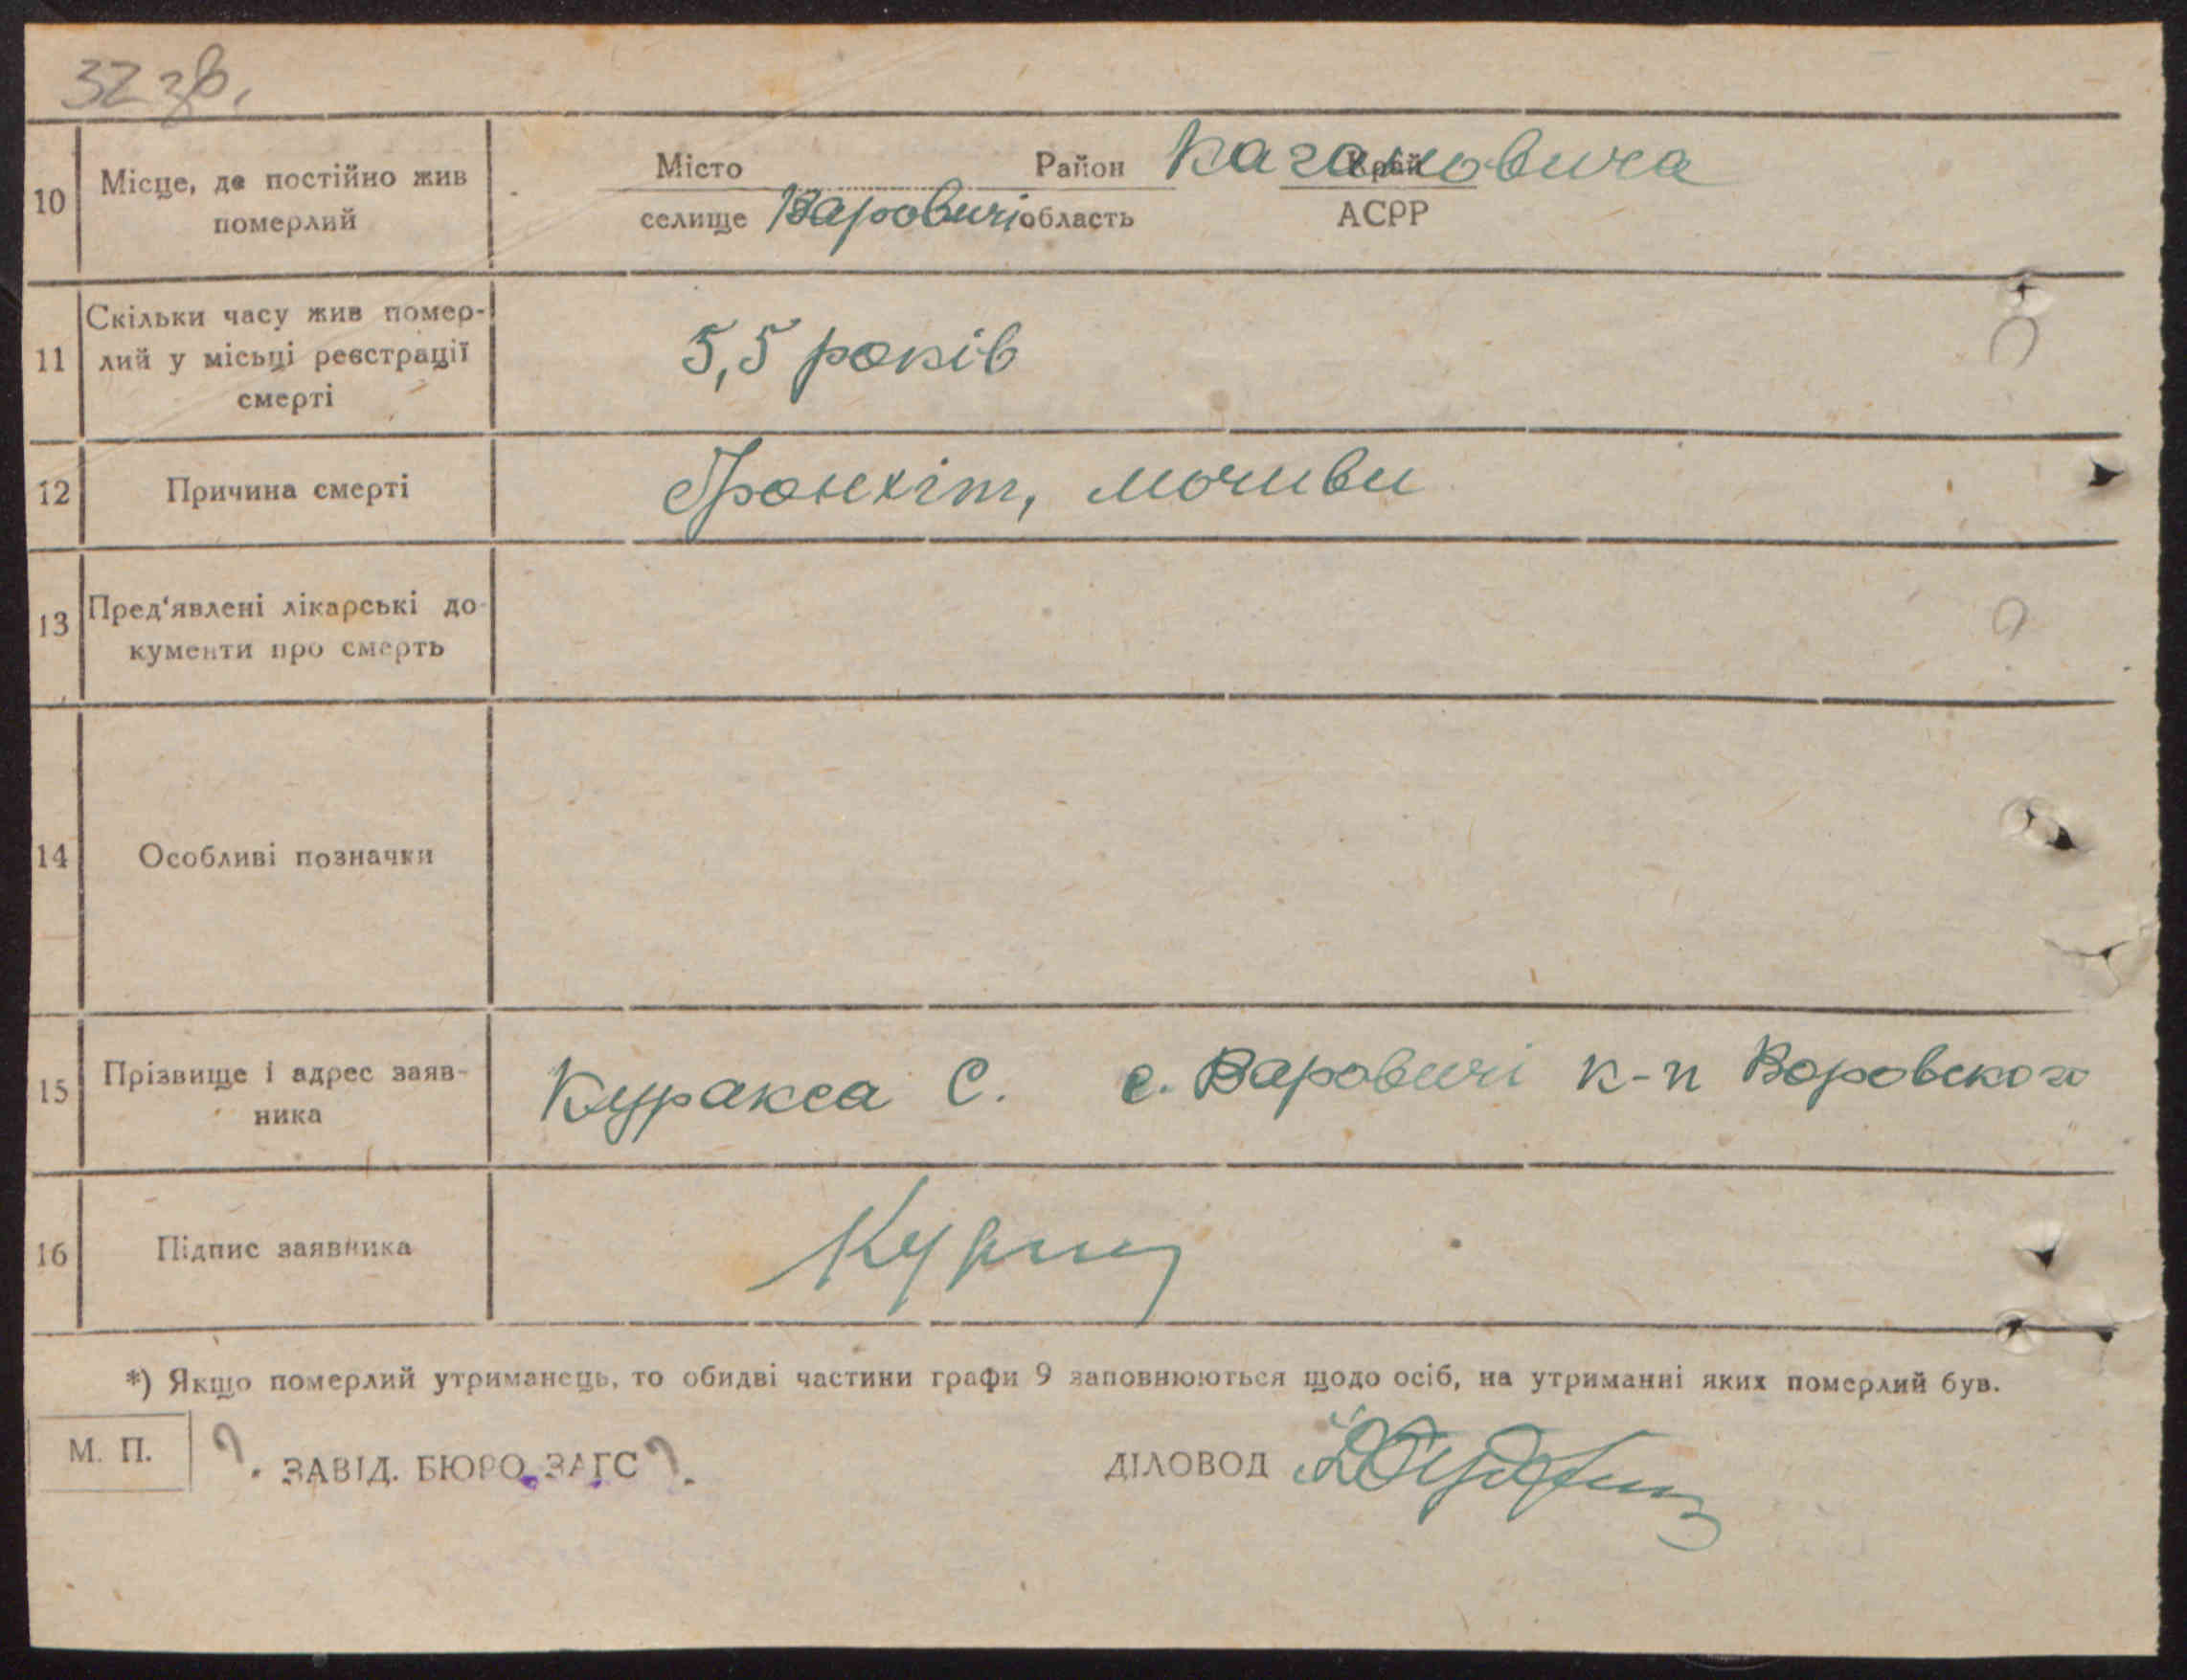 32 зв.
10 Місце, де постійно жив померлий
Місто Район Кагановича Край
селище Варовичі область АСРР
11 Скільки часу жив помер-
лий у місьці реєстрації
смерті
5,5 років
12 Причина смерті
Бронхіт,
13 Пред'явлені лікарські до-
кументи про смерть
14 Особливі позначки
15 Прізвище і адрес заяв-
ника
Куракса С. с. Варовичі к-п Воровского
16 Підпис заявника
*) Якщо померлий утриманець, то обидві частини графи 9 заповнюються щодо осіб, на утриманні яких померлий був.
М. П.
ЗАВІД. БЮРО ЗАГС
ДІЛОВОД